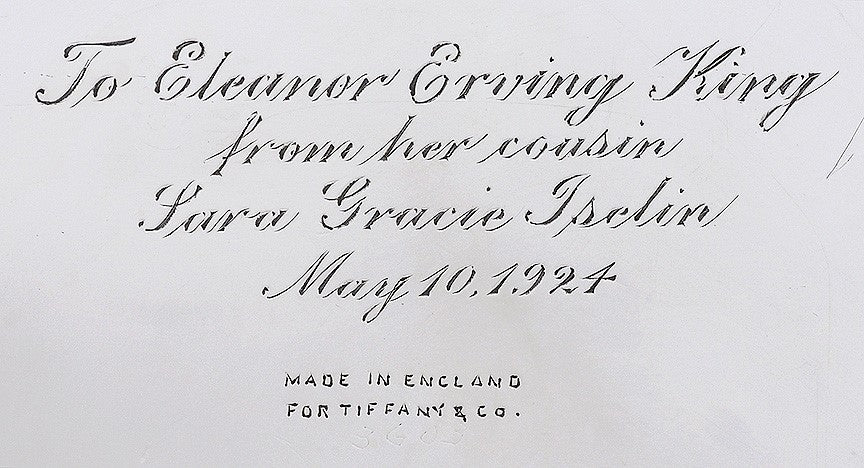 To Eleanor Erving King
from her cousin
Sara Gracie Iselin
May 10, 1924
MADE IN ENGLAND
FOR TIFFANY & CO.